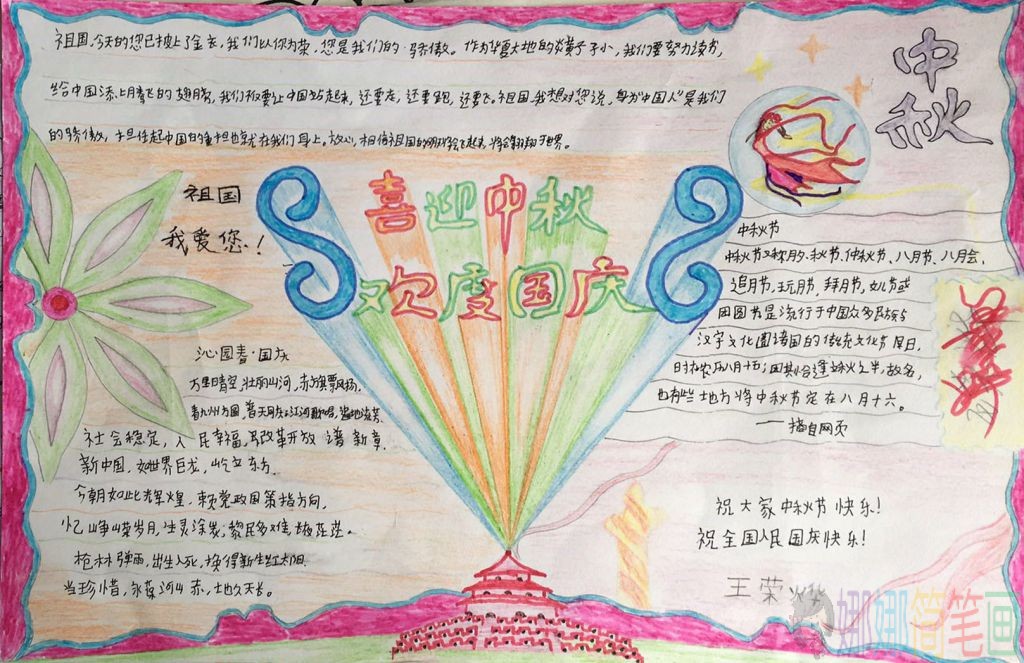 祖国,今天的您已披上了金衣,我们以你为荣,您是我们的骄傲。作为华夏大地的炎黄子小,我们要努力读书,
给中国添上腾飞的翅膀,我们不但要让中国站起来,还要走,还要跑,还要飞。祖国,我想对您说,身为"中国人"是我们
的骄傲,担任起中国的重担也就在我们身上。放心,相信祖国的明珠飞起来,将会翱翔于世界。
中秋
祖国
我爱您!
喜迎中秋
欢度国庆
中秋节
中秋节又称月夕、秋节、仲秋节、八月节、八月会、
追月节、玩月节、拜月节、女儿节或
团圆节是流行于中国众多民族与
汉字文化圈诸国的传统文化节日,
时在农历八月十五;因其恰逢三秋之半,故名,
也有些地方将中秋节定在八月十六。
——摘自网页
沁园春·国庆
万里晴空,壮丽山河,赤旗飘扬。
看九州方圆,普天同庆;江河歌唱,
社会稳定,人民幸福,改革开放谱新章.
新中国,如世界巨龙,屹立东方.
今朝如此辉煌,赖党政国策指方向,
忆峥嵘岁月,生灵涂炭;黎民多难,
枪林弹雨,出生入死,换得新生红太阳.
当珍惜,永葆河山赤,地久天长。
祝大家中秋节快乐!
祝全国人民国庆快乐!
王荣烨
娜娜简笔画